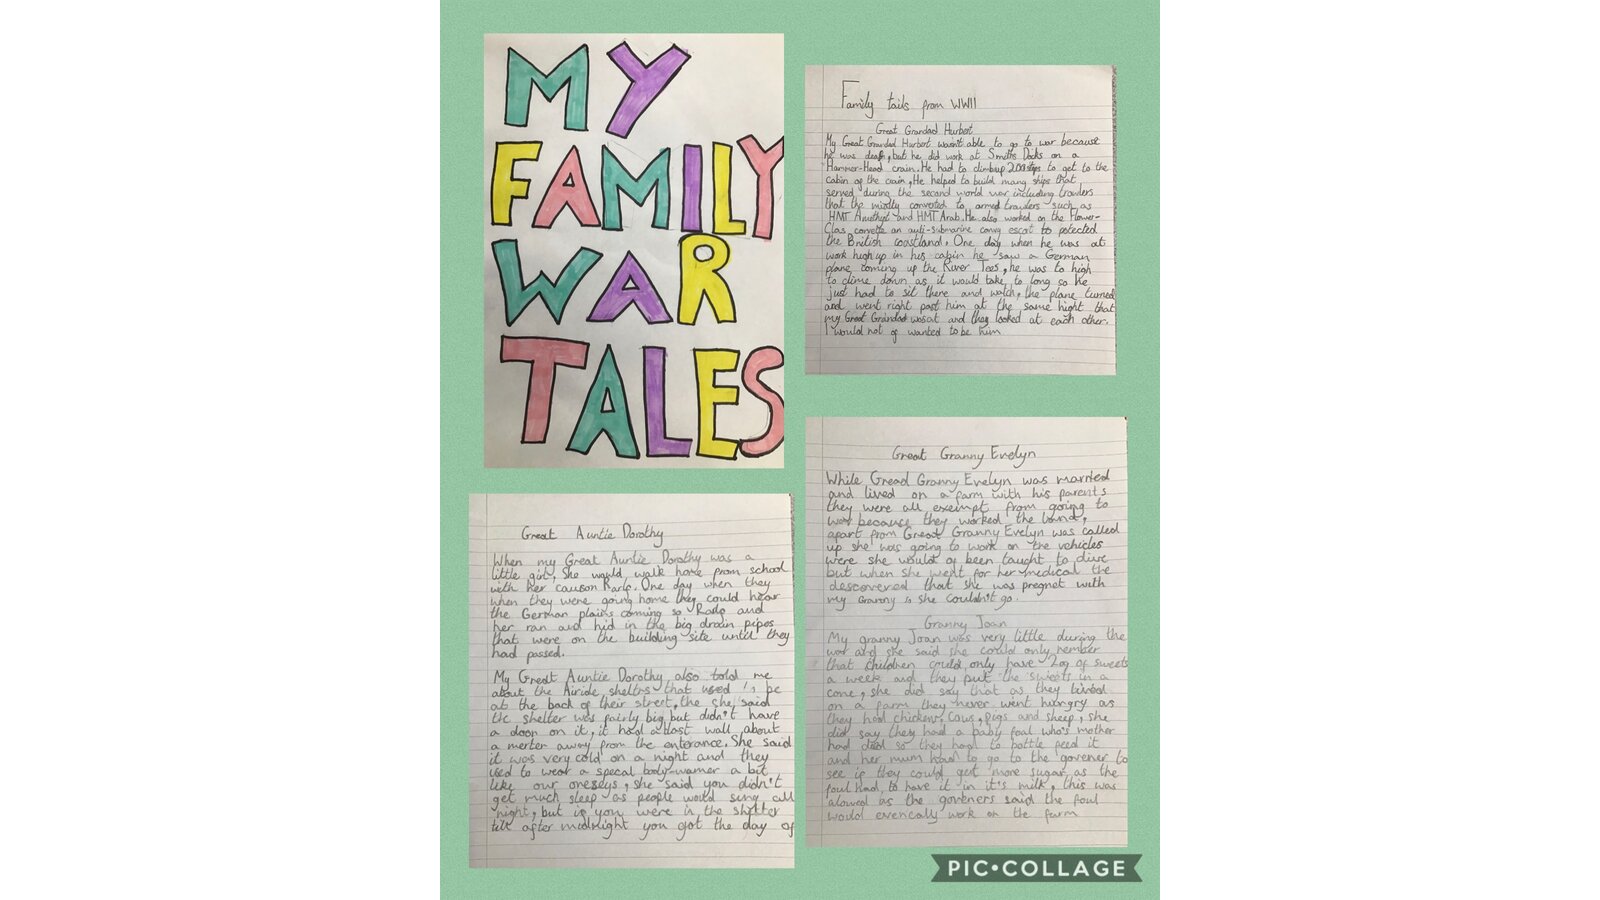 MY
FAMILY
WAR
TALES
Family tails from WWII
Great Grandad Hurbert
My Great Grandad Hurbert wasn't able to go to war because
he was deaf, but he did work at Smiths Docks on a
Hammer-Head crain. He had to climb up 200 steps to get to the
cabin of the crain, He helped to build many ships that
served during the second world war including trawlers
that the mostly converted to armed trawlers such as
HMT Amethyst and HMT Arab. He also worked on the Flower-
Clas corvette an anti-submarine convoy escort to potected
the British coastland. One day when he was at
work high up in his cabin he saw a German
plane coming up the River Tees, he was to high
to clime down as it would take to long so he
just had to sit there and watch, the plane turned
and went right past him at the same hight that
my Great Grandad was at and they looked at each other.
I would not of wanted to be him
Great Auntie Dorothy
When my Great Auntie Dorothy was a
little girl, she would walk home from school
with her causon. One day when they
when they were going home they could hear
the German plains coming so and
her ran and hid in the big drain pipes
that were on the building site until they
had passed.
My Great Auntie Dorothy also told me
about the Airide sheltrs that used to be
at the back of their street, the she said
the shelter was fairly big but didn't have
a door on it, it had a blast wall about
a merter away from the enterance. She said
it was very cold on a night and they
used to wear a specal body-warmer a bit
like our oneseys, she said you didn't
get much sleep as people would sing all
night, but if you were in the shelter
till after midnight you got the day of
Great Granny Evelyn
While Gread Granny Evelyn was married
and lived on a farm with his parents
they were all exeimpt from going to
war because they worked the land,
apart from Great Granny Evelyn was called
up she was going to work on the vehicles
were she would of been taught to dive
but when she went for her medical the
descovered that she was pregnet with
my Granny so she couldn't go.
Granny Joan
My granny Joan was very little during the
war and she said she could only rember
that children could only have 2og of sweets
a week and they put the sweets in a
cone, she did say that as they lived
on a farm they never went hungry as
they had chickens, cows, pigs and sheep, she
did say they had a baby foal who's mother
had died so they had to bottle feed it
and her mum had to go to the govener to
see if they could get more sugar as the
foul had to have it in it's milk, this was
alowed as the goveners said the foul
would evencally work on the farm
PIC•COLLAGE